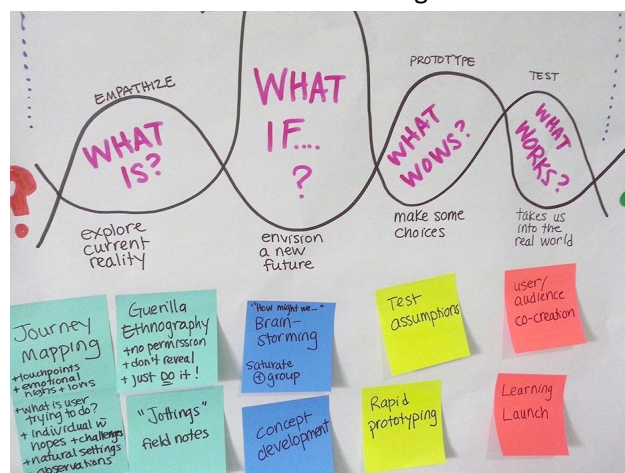 EMPATHIZE
WHAT
IS?
explore
current
reality
WHAT
IF....
?
envision
a new
future
PROTOTYPE
WHAT
WOWS?
make some
choices
TEST
WHAT
WORKS?
takes us
into the
real world
?
Journey
Mapping
+touchpoints
+ emotional
highs + lows
+what is user
trying to do?
+ individual w
hopes + challenges
+natural settings
observations
Guerilla
Ethnography
+no permission
+don't reveal
+ just Do it!
"Jottings"
field notes
"How might we..."
Brain-
storming
saturate
+ group
concept
development
Test
assumptions
Rapid
prototyping
user/
audience
co-creation
Learning
Launch